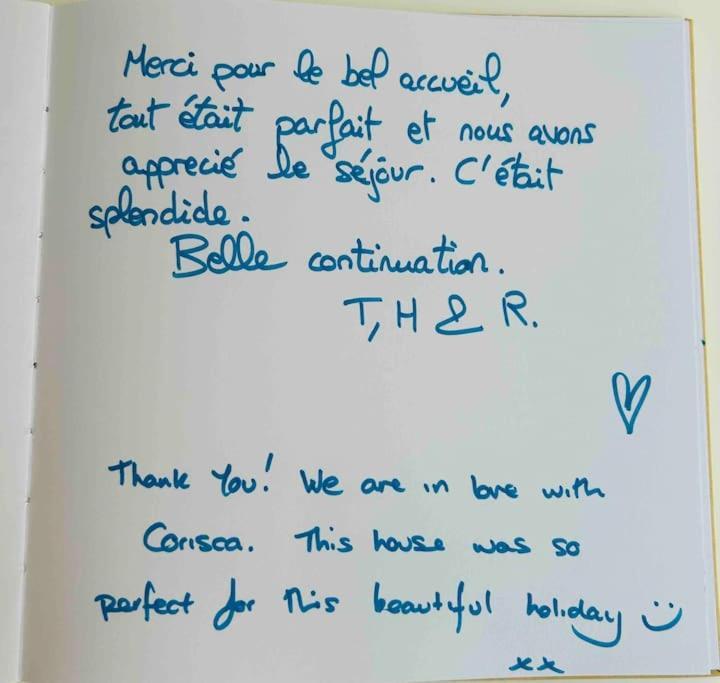 Merci pour le bel accueil,
tout était parfait et nous avons
apprecié le séjour. C'était
splendide.
Belle continuation.
T, H & R.
Thank You! We are in love with
Corisca. This house was so
perfect for this beautiful holiday :)
xx